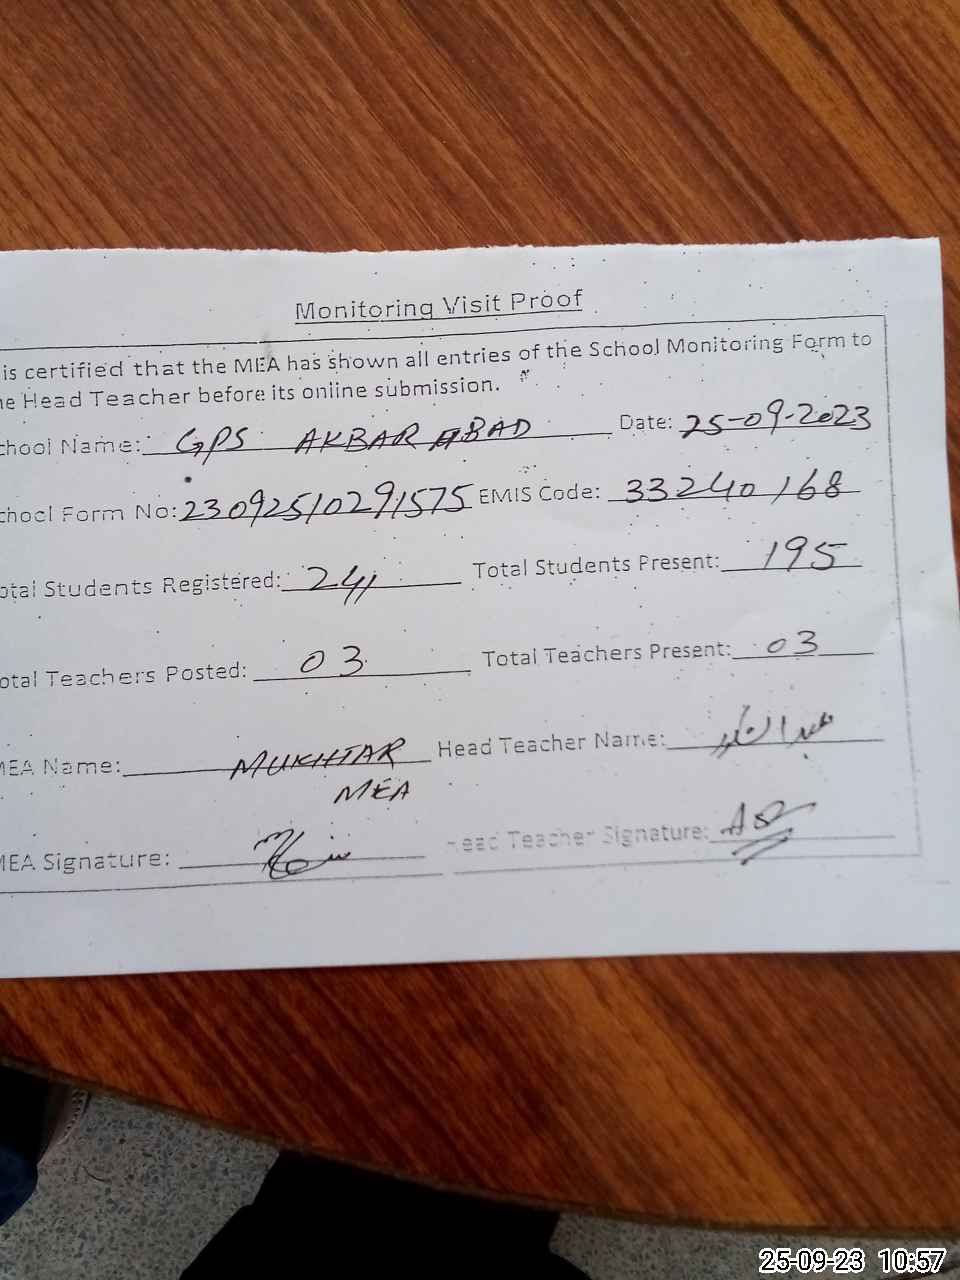 Monitoring Visit Proof
is certified that the MEA has shown all entries of the School Monitoring Form to
he Head Teacher before its online submission.
chool Name: GPS AKBAR ABAD Date: 25-09-2023
chool Form No: 23092510291575 EMIS Code: 33240168
otal Students Registered: 241 Total Students Present: 195
otal Teachers Posted: 03 Total Teachers Present: 03
MEA Name: MUKHTAR Head Teacher Name:
MEA
MEA Signature: Head Teacher Signature:
25-09-23 10:57